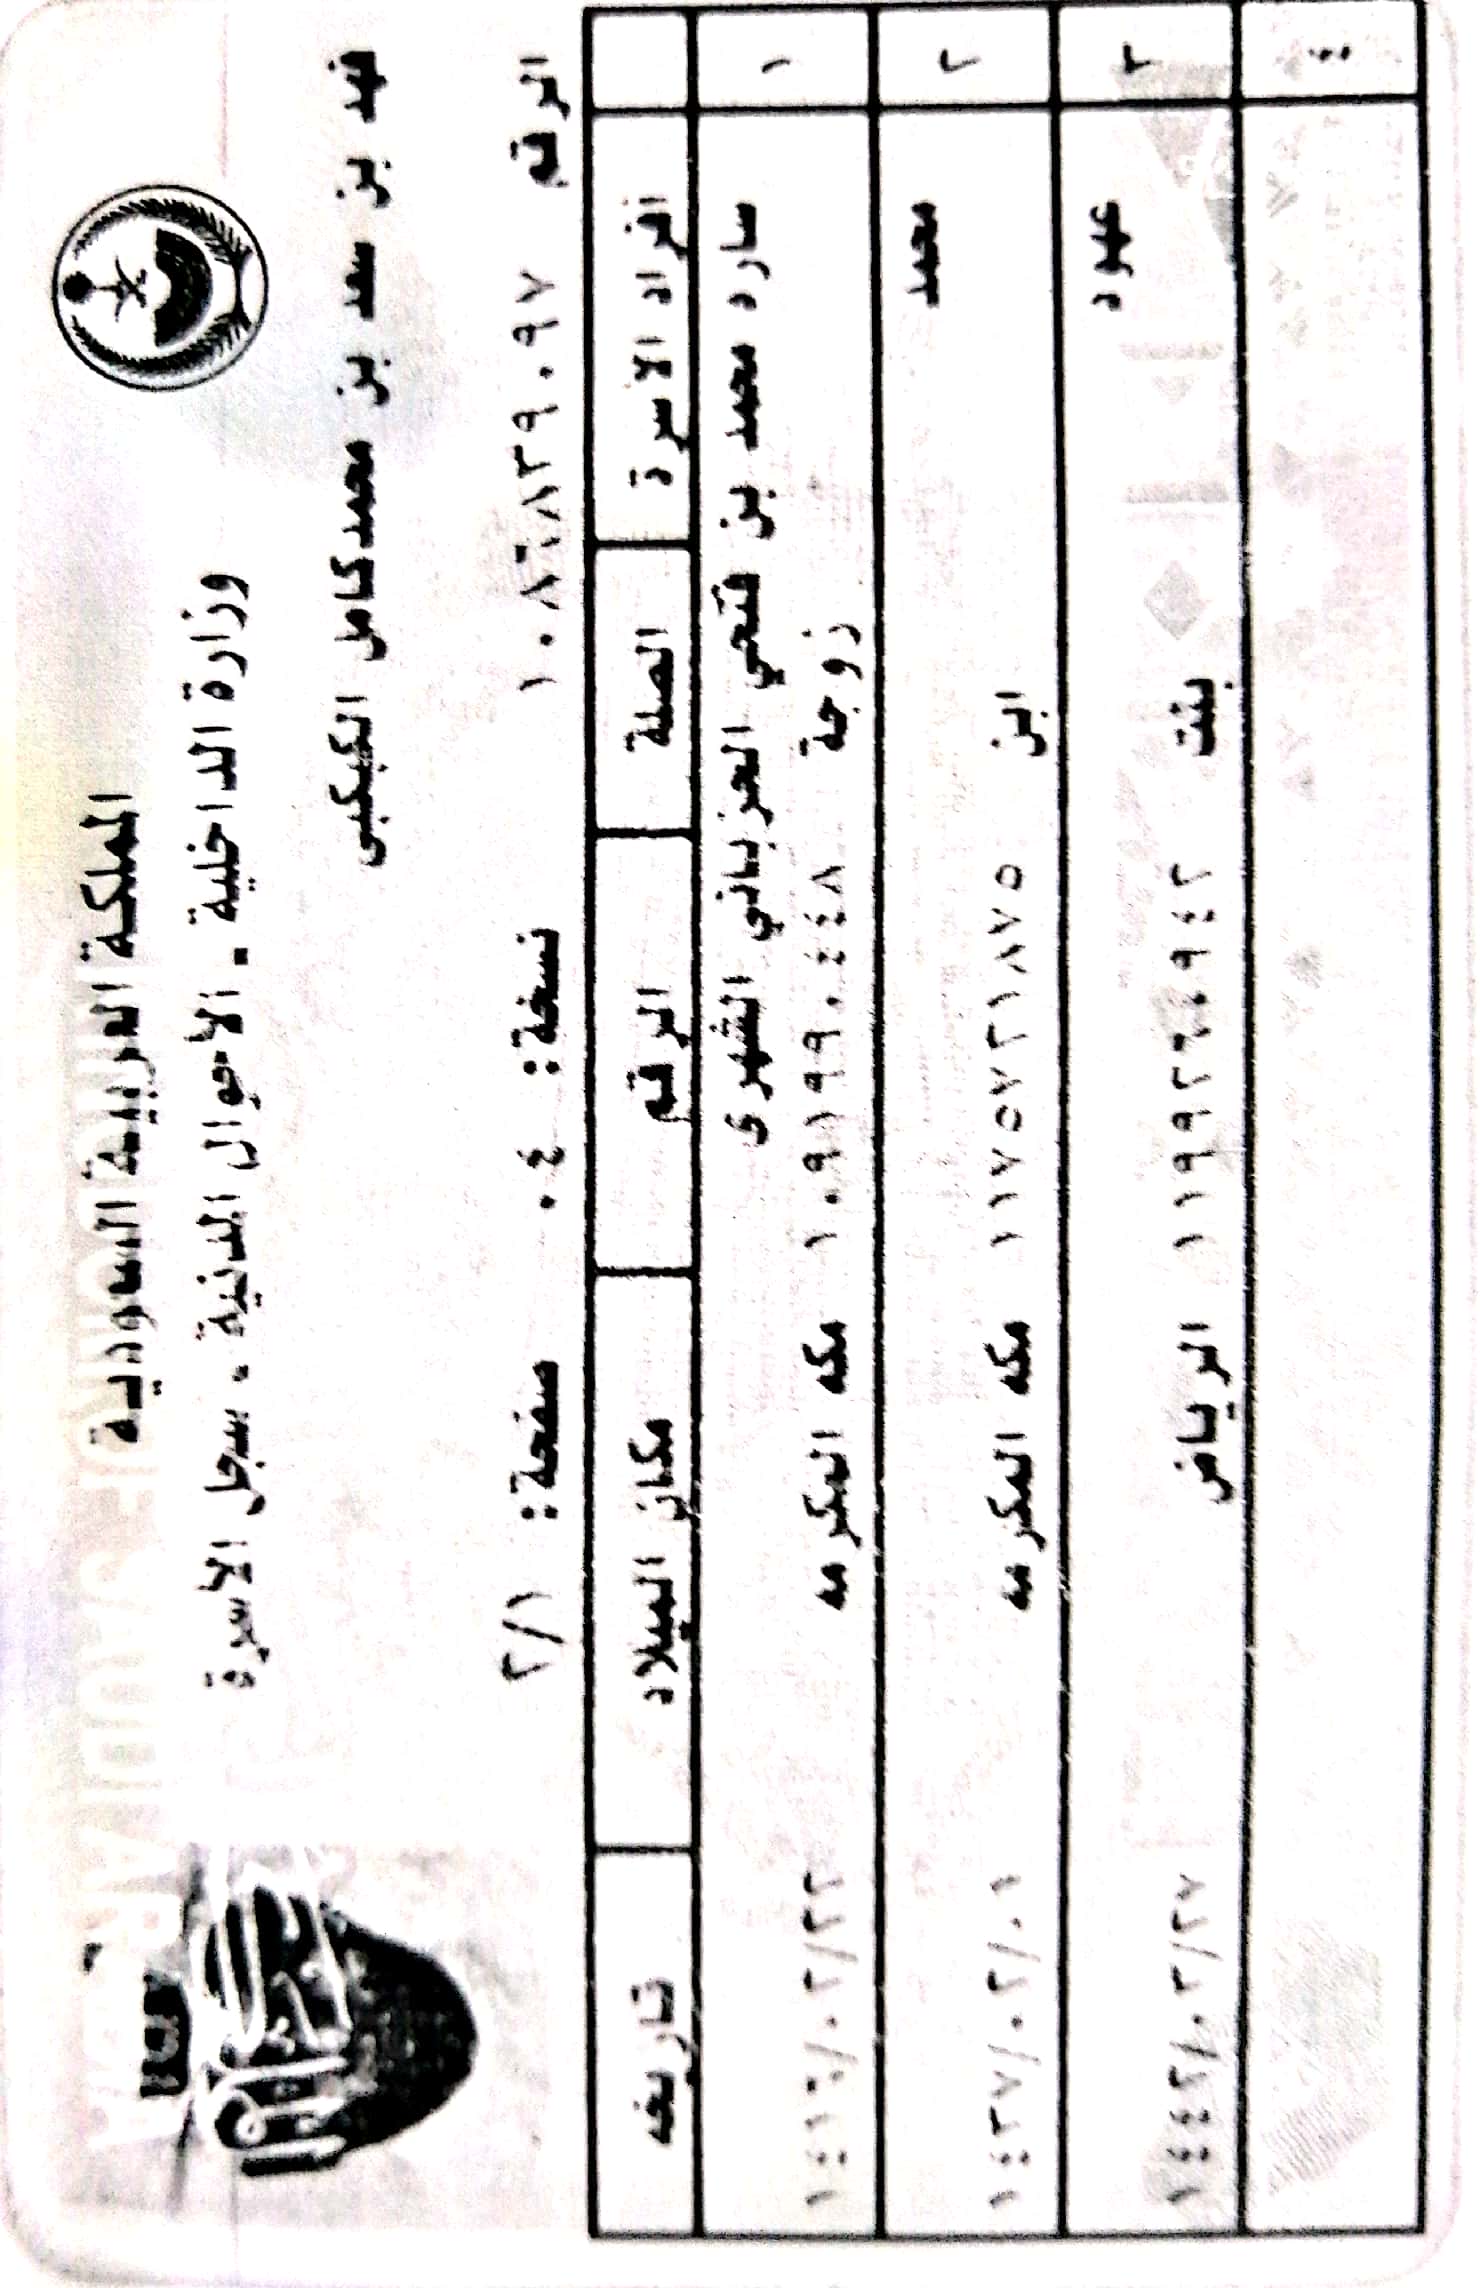 المملكة العربية السعودية
وزارة الداخلية - الأحوال المدنية - سجل الأسرة
فهد بن سعد بن محمدكامل الكبكبي
الرقم ١٠٨٦٨٣٩٠٩٧ نسخة: ٠٤ صفحة: ٢/١
افراد الاسرة الصلة الرقم مكان الميلاد تاريخه
١ ساره محمد بن فتحي العزباني الشهرى
زوجة ١٠٩١٩٩٠٤٤٨ مكه المكرمه ١٤١٦/٠٢/٢٢
٢ محمد
ابن ١١٧٥٧٢١٨٧٥ مكه المكرمه ١٤٣٧/٠٢/٠١
٣ عهود
بنت ١١٩٩٢٦٤٩٤٢ الرياض ١٤٤٢/٠٢/٢٧
٤